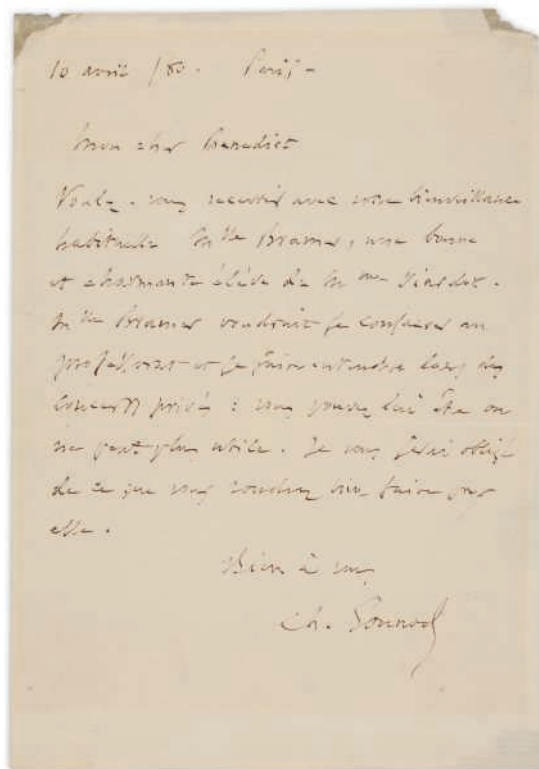 10 avril /80. Paris -
Mon cher Benedict
Voulez-vous recevoir avec votre bienveillance
habituelle Mlle Bramer, une bonne
et charmante élève de Mme Viardot.
Mlle Bramer voudrait se consacrer au
professorat et se faire entendre dans des
concerts privés : vous pouvez lui être on
ne peut plus utile. Je vous serai obligé
de ce que vous voudrez bien faire pour
elle.
Bien à vous
Ch. Gounod